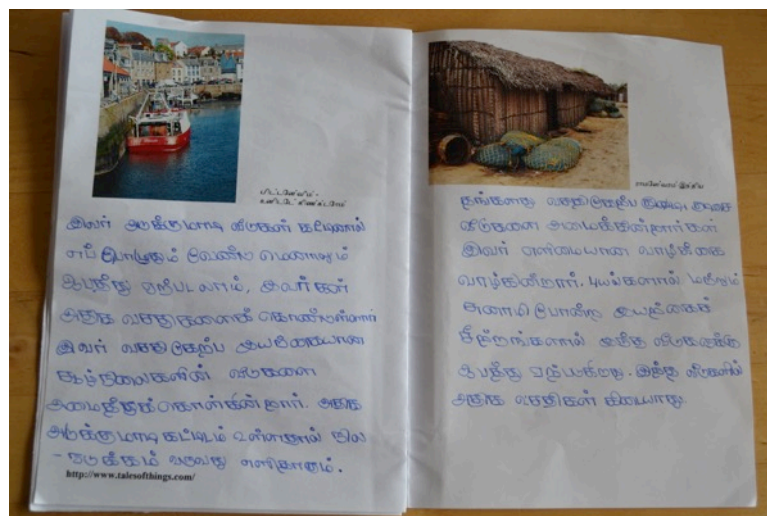 பிட்டன்வீம் -
இவர் அடுக்குமாடி வீடுகள் கட்டினால்
எப்பொழுதும் வேண்டுமெனாலும்
ஆபத்து ஏற்படலாம், இவர்கள்
அதிக வசதிகளைக் கொண்டுள்ளார்
இவர் வசதிகேற்ப இயற்கையான
சூழ்நிலைகளின் வீடுகளை
அமைத்துக்கொள்கின்றார். அதிக
அடுக்குமாடி கட்டிடம் உள்ளதால் நில
- நடுக்கம் வருவது எளிதாகும்.
http://www.talesofthings.com/
இந்தியா
தங்களது வசதிகேற்ப குடிசை
வீடுகளை அமைக்கின்றார்கள்
இவர் எளிமையான வாழ்க்கை
வாழ்கின்றார். புயல்களால் மற்றும்
சுனாமி போன்ற இயற்கைச்
சீற்றங்களால் இந்த வீடுகளுக்கு
ஆபத்து ஏற்படுகிறது. இந்த வீடுகளில்
அதிக வசதிகள் கிடையாது